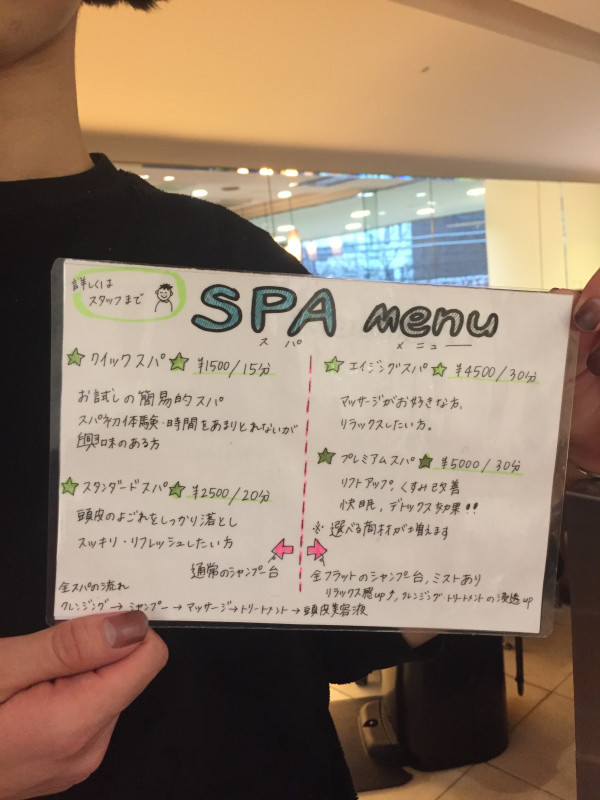 詳しくは
スタッフまで
SPA menu
スパ メニュー
クイックスパ ¥1500/15分
お試しの簡易的スパ
スパ初体験・時間をあまりとれないが
興味のある方
スタンダードスパ ¥2500/20分
頭皮のよごれをしっかり落とし
スッキリ・リフレッシュしたい方
通常のシャンプー台
エイジングスパ ¥4500/30分
マッサージがお好きな方、
リラックスしたい方。
プレミアムスパ ¥5000/30分
リフトアップ、くすみ改善
快眠、デトックス効果!!
※選べる商材が増えます
全フラットのシャンプー台、ミストあり
リラックス感up↑、クレンジング・トリートメントの浸透up
全スパの流れ
クレンジング→シャンプー→マッサージ→トリートメント→頭皮美容液